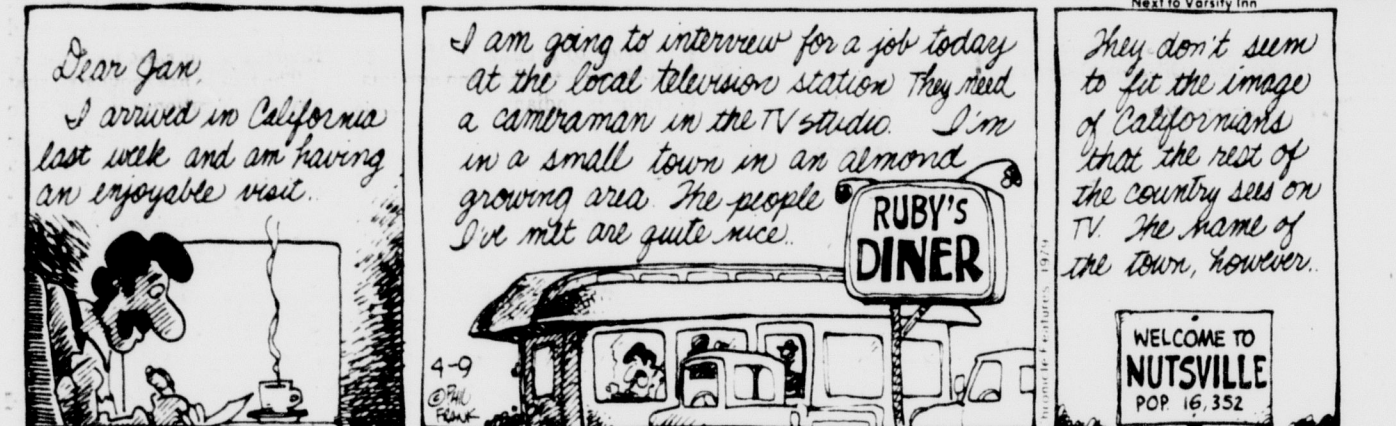 Next to Varsity Inn
Dear Jan,
I arrived in California
last week and am having
an enjoyable visit.
I am going to interview for a job today
at the local television station They need
a cameraman in the TV studio. I'm
in a small town in an almond
growing area. The people
I've met are quite nice..
RUBY'S
DINER
4-9
© PHIL
FRANK
Chronicle Features 1979
They don't seem
to fit the image
of Californians
that the rest of
the country sees on
TV. The name of
the town, however..
WELCOME TO
NUTSVILLE
POP. 16,352